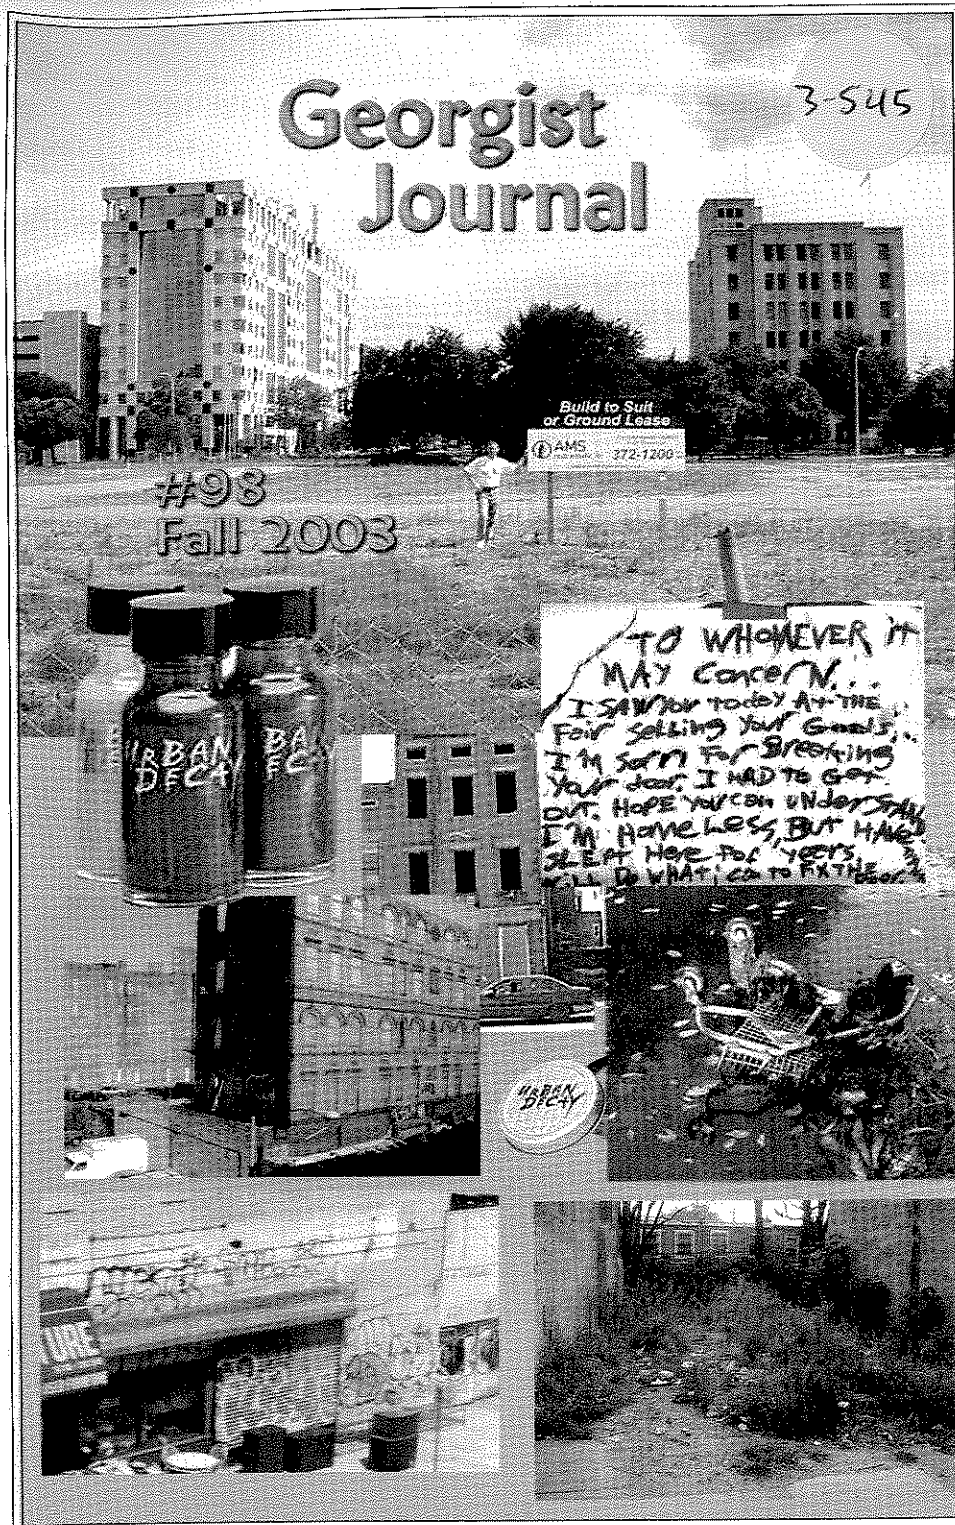 Georgist
Journal
3-545
Build to Suit
or Ground Lease
AMS
272-1200
#98
Fall 2003
URBAN
DECAY
TO WHOMEVER iT
MAY ConceRN...
I SAW YOU TODAY AT THE
Fair Selling Your Goods...
I'M Sorry For Breaking
Your door. I HAD TO Get
OUT. HOPE YOU CAN UNDERSTAND
I'M HOMELESS, BUT HAVE
SLEPT Here For years.
I'LL DO WHAT I can TO FIX THE Door.
URBAN
DECAY
URE